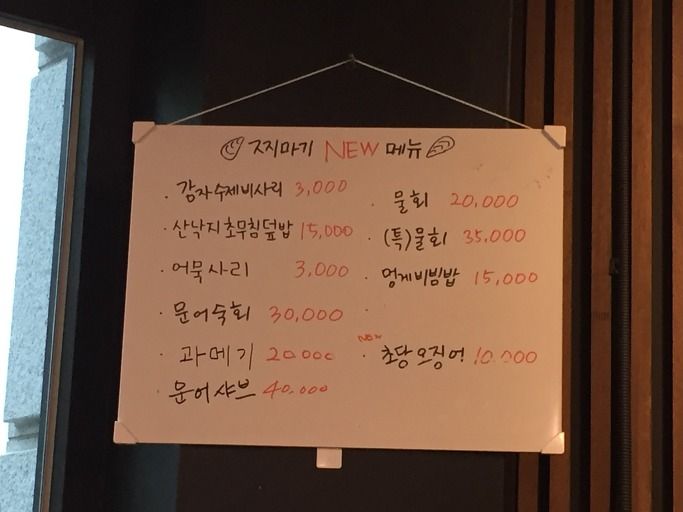 찌마기 NEW 메뉴
· 감자수제비사리 3,000
· 산낙지초무침덮밥 15,000
· 어묵사리 3,000
· 문어숙회 30,000
· 과메기 20.000
· 문어샤브 40.000
· 물회 20,000
· (특)물회 35.000
· 멍게비빔밥 15,000
·
NEW
· 초당오징어 10.000